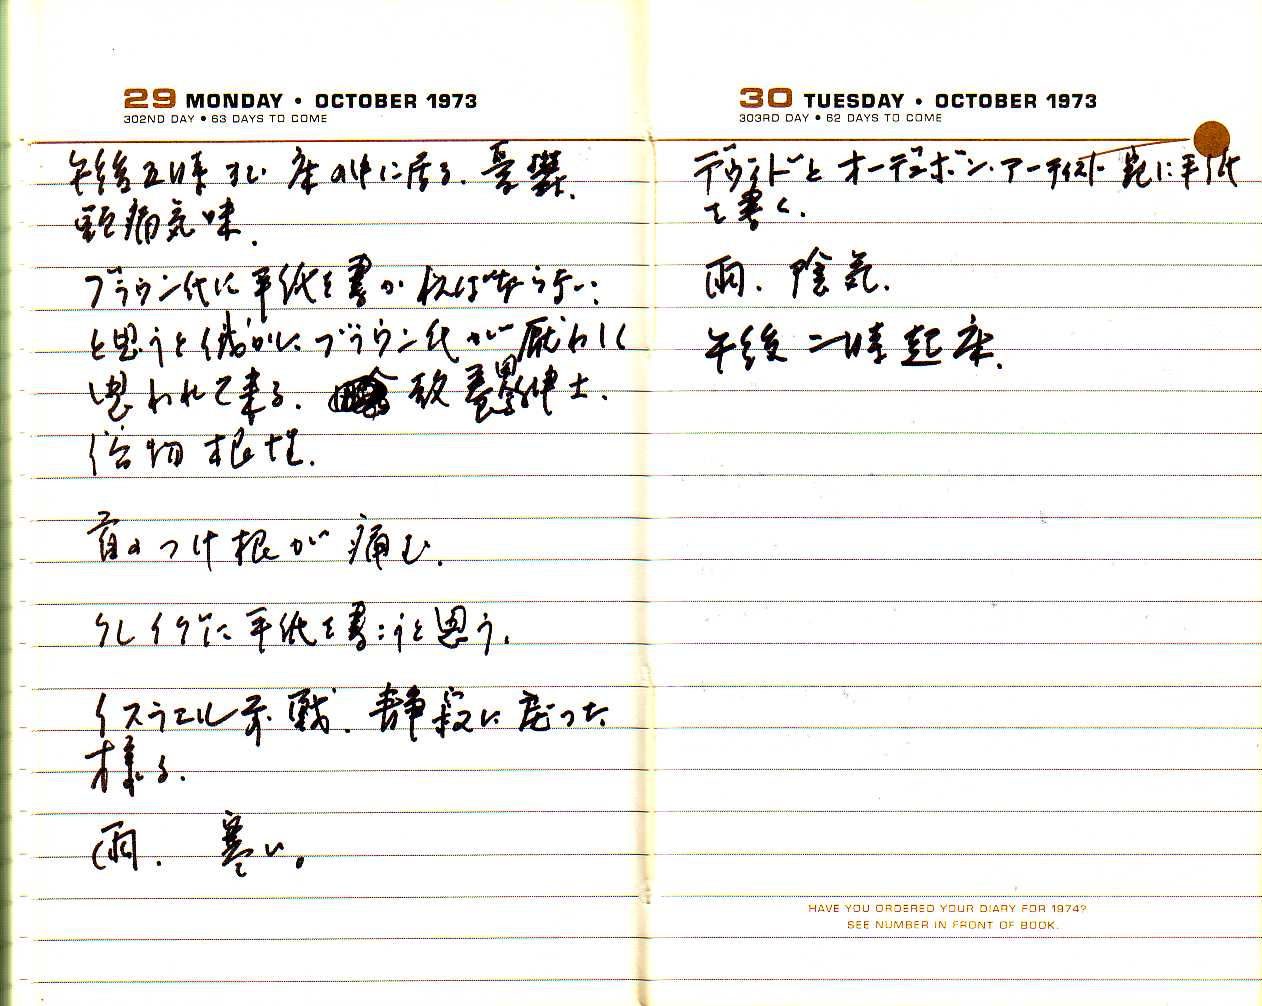 29 MONDAY • OCTOBER 1973
302ND DAY • 63 DAYS TO COME
午後五時まで床の中に居る、憂鬱、
頭痛気味、
ブラウン氏に手紙を書かねばならない、
と思うと俄かにブラウン氏が厭わしく
思われて来る、紳士、
俗物根性、
首のつけ根が痛む、
クレイグに手紙を書こうと思う、
イスラエル戦、静寂に戻った
様る、
雨、寒い。
30 TUESDAY • OCTOBER 1973
303RD DAY • 62 DAYS TO COME
デヴィドとオーデュボン・アーティスト宛に手紙
を書く、
雨、陰気、
午後二時起床、
HAVE YOU ORDERED YOUR DIARY FOR 1974?
SEE NUMBER IN FRONT OF BOOK.